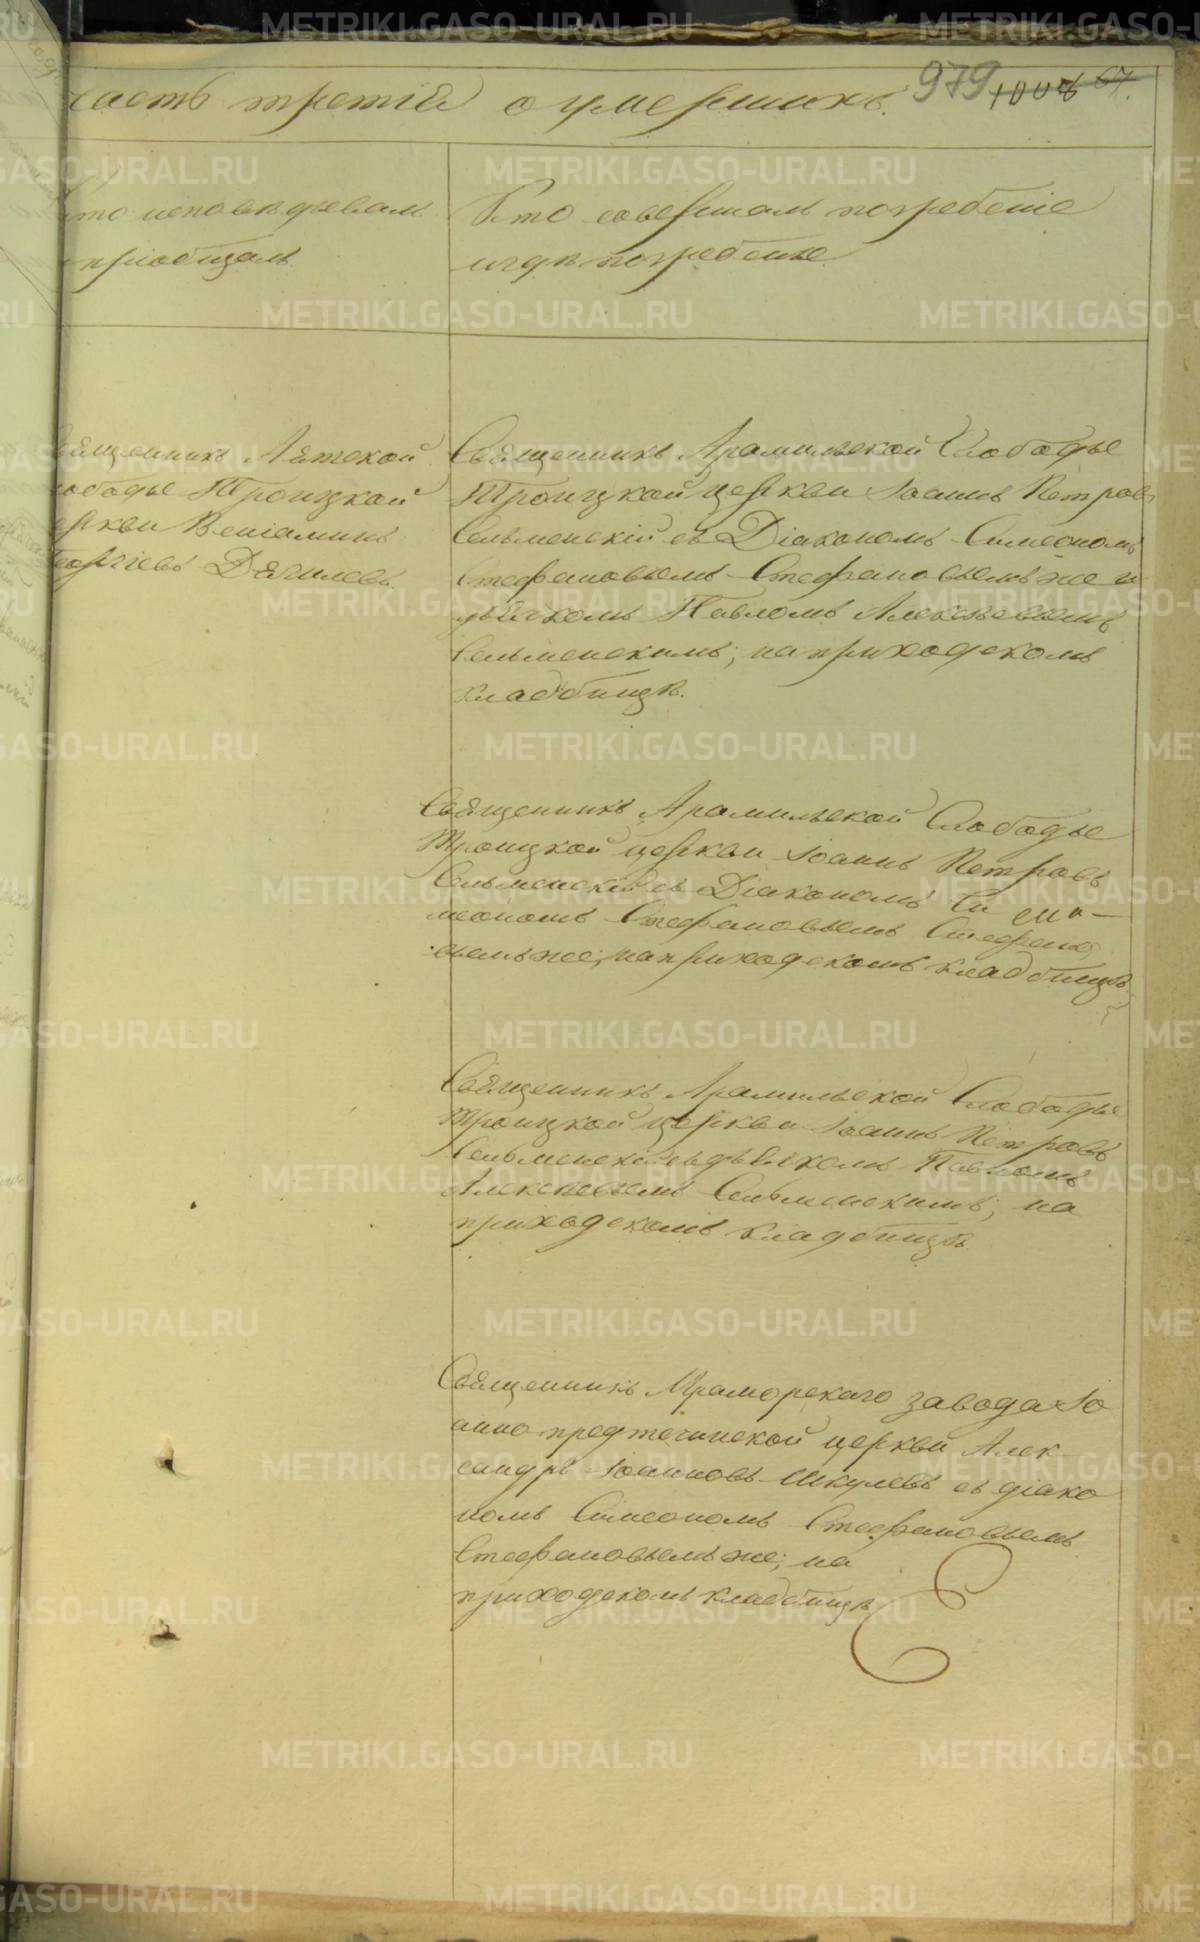 часть третія о умершихъ. 979 1008 67.
Кто исповѣдывалъ
и пріобщалъ
Кто совершалъ погребеніе
и гдѣ погребены
Священникъ Лятской
Слободы Троицкой
церкви Веніаминъ
Георгіевъ Дягилевъ.
Священникъ Арамильской Слободы
Троицкой церкви Іоаннъ Петровъ
Сельменскій съ Діакономъ Симеономъ
Стефановымъ Стефановымъ же и
дьячкомъ Павломъ Алексѣевымъ
Сельменскимъ; на приходскомъ
кладбищѣ.
Священникъ Арамильской Слободы
Троицкой церкви Іоаннъ Петровъ
Сельменскій съ Діакономъ Си
меономъ Стефановымъ Стефано
вымъ же; на приходскомъ кладбищѣ.
Священникъ Арамильской Слободы
Троицкой церкви Іоаннъ Петровъ
Сельменскій съ дьячкомъ Павломъ
Алексѣевымъ Сельменскимъ; на
приходскомъ кладбищѣ
Священникъ Мраморскаго завода Іо
анно предтечинской церкви Алек
сандръ Іоанновъ Шкулевъ съ діако
номъ Симеономъ Стефановымъ
Стефановымъ же; на
приходскомъ кладбищѣ
METRIKI.GASO-URAL.RU